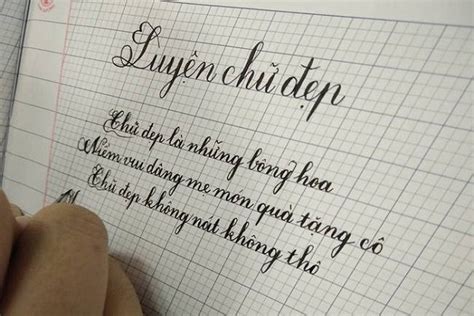 Luyện chữ đẹp
Chữ đẹp là những bông hoa
Niềm vui dâng mẹ món quà tặng cô
Chữ đẹp không nát không thô